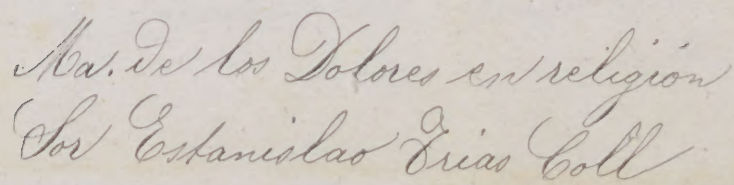 Ma. de los Dolores en religión
Sor Estanislao Trias Coll